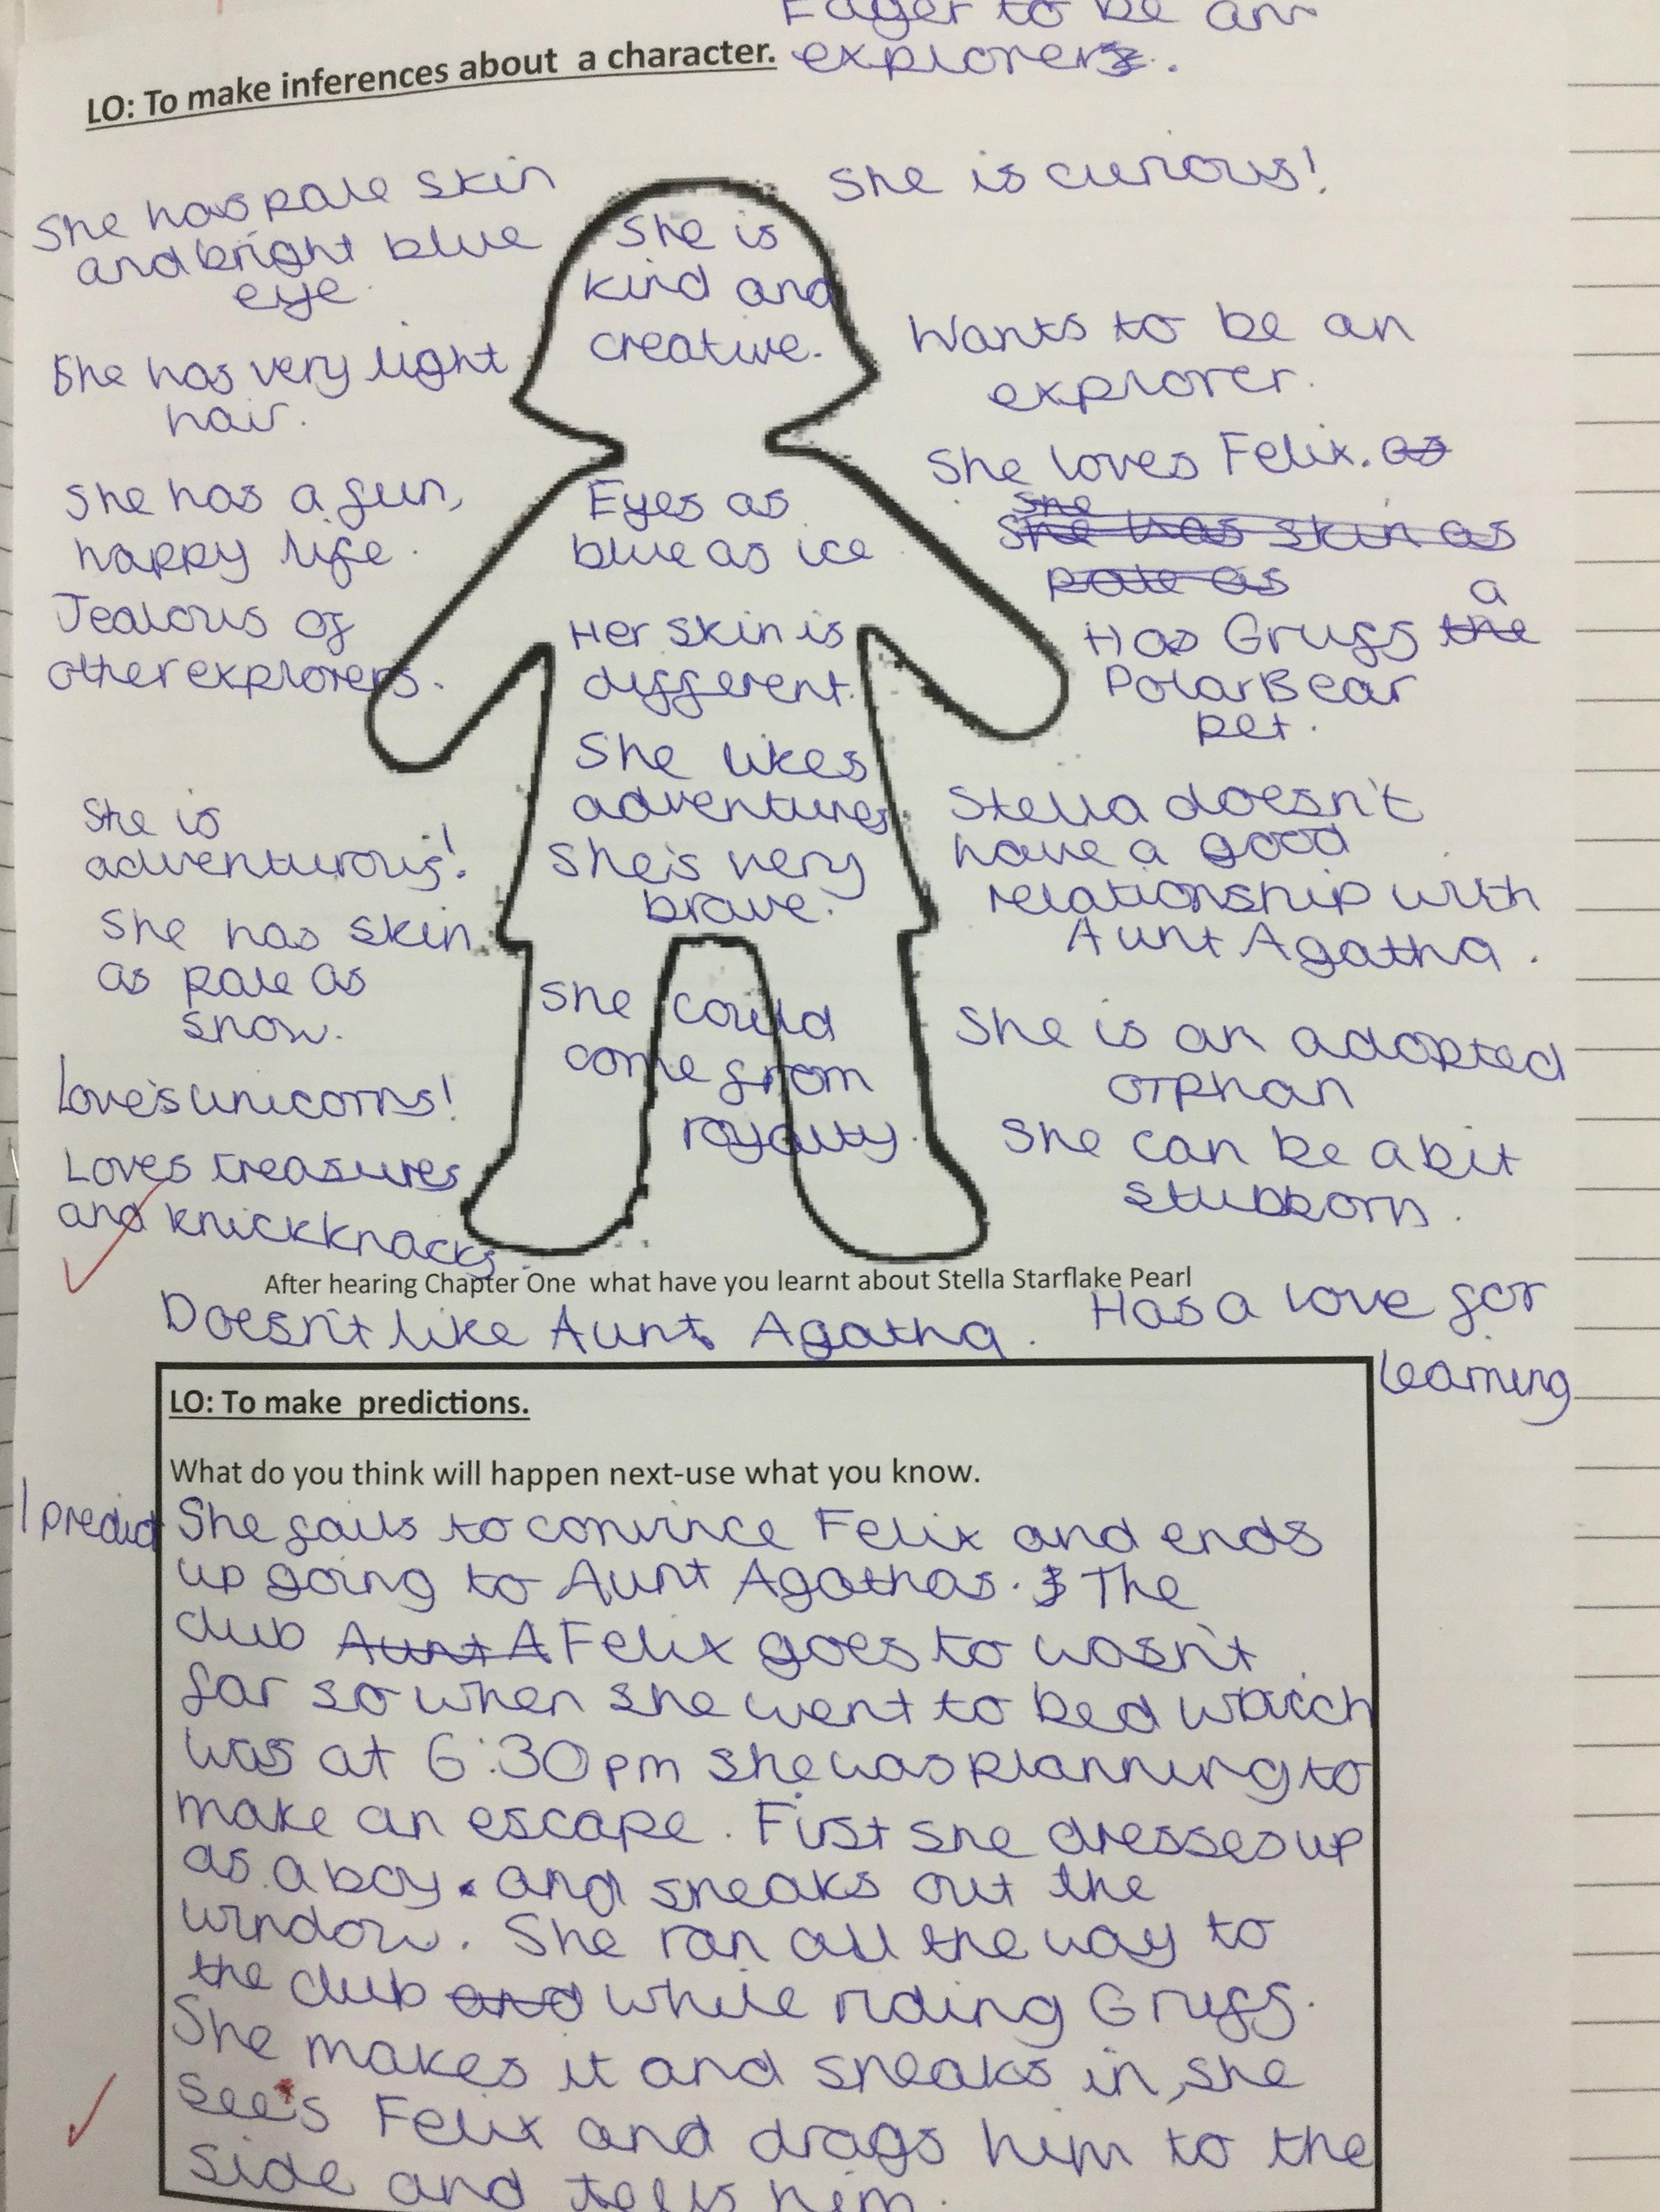 Eager to be an
explorer.
LO: To make inferences about a character.
She has pale skin
and bright blue
eye
She has very light
hair.
She has a fun,
happy life.
Jealous of
other explorers.
She is
adventurous!
She has skin
as pale as
snow.
Love's unicorns!
Loves treasures
and knickknacks.
She is
kind and
creative.
Eyes as
blue as ice
Her skin is
different.
She likes
adventures.
She's very
brave.
She could
come from
royalty.
She is curious!
Wants to be an
explorer.
She loves Felix. as
she
She has skin as
pale as
a
Has Gruff the
Polar Bear
pet.
Stella doesn't
have a good
relationship with
Aunt Agatha.
She is an adopted
orphan
She can be a bit
stubborn.
After hearing Chapter One what have you learnt about Stella Starflake Pearl
Doesn't like Aunt Agatha.
Has a love for
learning
LO: To make predictions.
What do you think will happen next-use what you know.
I predict She fails to convince Felix and ends
up going to Aunt Agathas. The
club Aunt A Felix goes to wasn't
far so when she went to bed wich
was at 6:30pm she was planning to
make an escape. First she dresses up
as a boy. and sneaks out the
window. She ran all the way to
the club and while riding Gruff.
She makes it and sneaks in, she
sees Felix and drags him to the
side and tells him.